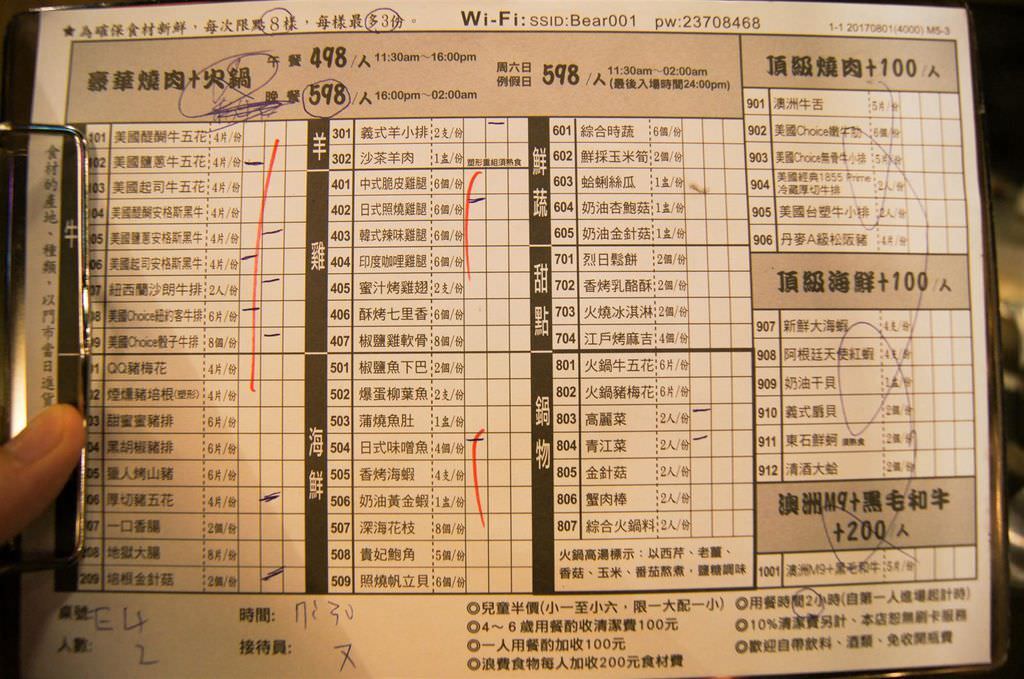 ★為確保食材新鮮，每次限點8樣，每樣最多3份。 Wi-Fi: SSID:Bear001 pw:23708468
1-1 20170801(4000) M5-3
豪華燒肉+火鍋
午餐 498/人 11:30am~16:00pm
晚餐 598/人 16:00pm~02:00am
周六日例假日 598/人 11:30am~02:00am (最後入場時間24:00pm)
食材的產地、種類，以門市當日進貨
牛
101 美國醍醐牛五花 4片/份
102 美國鹽蔥牛五花 4片/份
103 美國起司牛五花 4片/份
104 美國醍醐安格斯黑牛 4片/份
105 美國鹽蔥安格斯黑牛 4片/份
106 美國起司安格斯黑牛 4片/份
107 紐西蘭沙朗牛排 2人/份
108 美國Choice紐約客牛排 6片/份
109 美國Choice骰子牛排 8個/份
01 QQ豬梅花 4片/份
02 煙燻豬培根(塑形) 4片/份
03 甜蜜蜜豬排 6片/份
04 黑胡椒豬排 4片/份
05 獵人烤山豬 6片/份
06 厚切豬五花 4片/份
07 一口香腸 2個/份
208 地獄大腸 8片/份
209 培根金針菇 2個/份
羊
301 義式羊小排 2支/份
302 沙茶羊肉 1盅/份 塑形重組須熟食
雞
401 中式脆皮雞腿 6個/份
402 日式照燒雞腿 6個/份
403 韓式辣味雞腿 6個/份
404 印度咖哩雞腿 6個/份
405 蜜汁烤雞翅 2支/份
406 酥烤七里香 6個/份
407 椒鹽雞軟骨 8個/份
海鮮
501 椒鹽魚下巴 2個/份
502 爆蛋柳葉魚 2支/份
503 蒲燒魚肚 1盅/份
504 日式味噌魚 4個/份
505 香烤海蝦 4支/份
506 奶油黃金蝦 1盅/份
507 深海花枝 8個/份
508 貴妃鮑魚 5個/份
509 照燒帆立貝 6個/份
鮮蔬
601 綜合時蔬 6個/份
602 鮮採玉米筍 2個/份
603 蛤蜊絲瓜 1盅/份
604 奶油杏鮑菇 1盅/份
605 奶油金針菇 1盅/份
甜點
701 烈日鬆餅 2個/份
702 香烤乳酪酥 2個/份
703 火燒冰淇淋 2個/份
704 江戶烤麻吉 4個/份
鍋物
801 火鍋牛五花 6片/份
802 火鍋豬梅花 6片/份
803 高麗菜 2人/份
804 青江菜 2人/份
805 金針菇 2人/份
806 蟹肉棒 2人/份
807 綜合火鍋料 2人/份
火鍋高湯標示：以西芹、老薑、
香菇、玉米、番茄熬煮，鹽糖調味
頂級燒肉+100/人
901 澳洲牛舌 5片/份
902 美國Choice嫩牛肋 6個/份
903 美國Choice無骨牛小排 5片/份
904 美國經典1855 Prime冷藏厚切牛排 2人/份
905 美國台塑牛小排 2人/份
906 丹麥A級松阪豬 4片/份
頂級海鮮+100/人
907 新鮮大海蝦 4支/份
908 阿根廷天使紅蝦 4支/份
909 奶油干貝 1盅/份
910 義式扇貝 2個/份
911 東石鮮蚵 須熟食 2個/份
912 清酒大蛤 2個/份
澳洲M9+黑毛和牛
+200/人
1001 澳洲M9+黑毛和牛 5片/份
桌號: E4 時間: 17:30
人數: 2 接待員: 又
◎兒童半價(小一至小六，限一大配一小)
◎4～6歲用餐酌收清潔費100元
◎一人用餐酌加收100元
◎浪費食物每人加收200元食材費
◎用餐時間2小時(自第一人進場起計時)
◎10%清潔費另計、本店恕無刷卡服務
◎歡迎自帶飲料、酒類、免收開瓶費